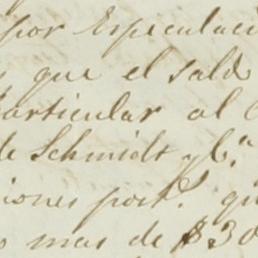 por Especulaci
que el saldo
Particular al C
de Schmidt y Cª
iones post.' qu
o mas de $30